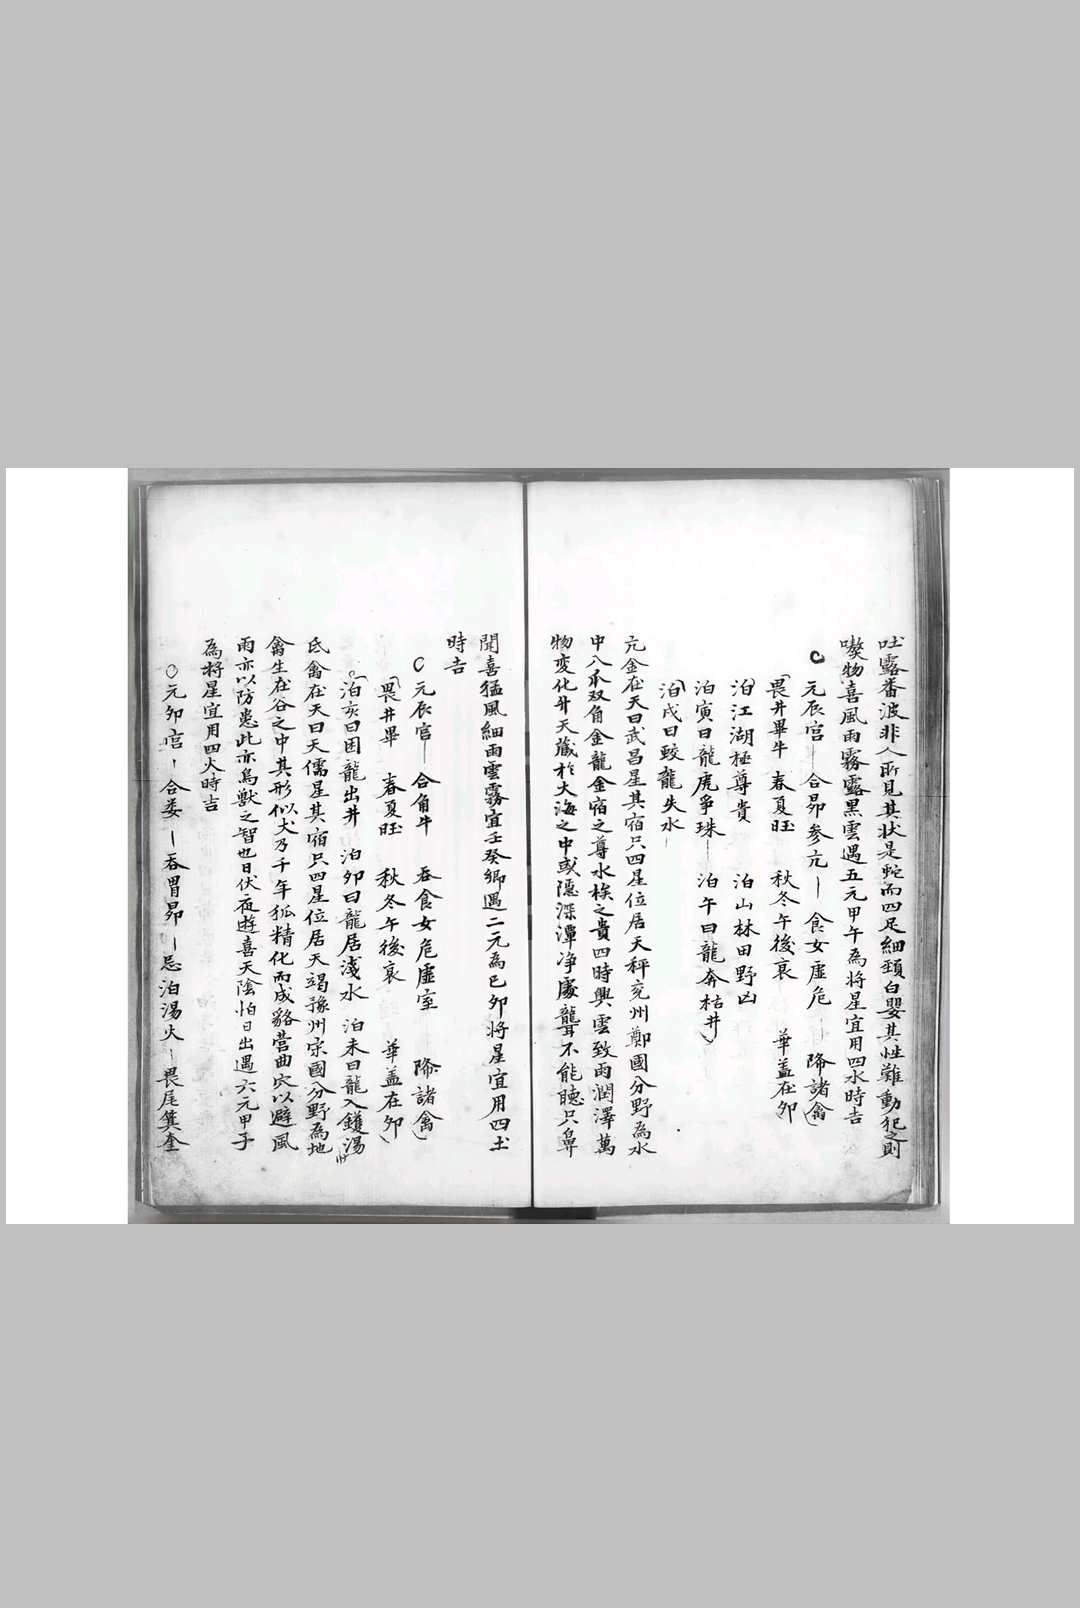 吐露番波非人所見其状是蛇而四足細頸白嬰其性難動犯之則
嚶物喜風雨霧露黑雲遇五元甲午為将星宜用四水時吉
○元辰宫 合昴参亢 食女虚危 降諸禽
畏井畢牛 春夏旺 秋冬午後衰 華盖在夘
泊江湖極尊貴 泊山林田野凶
泊寅曰龍虎爭珠 泊午曰龍奔枯井
泊戌曰蛟龍失水
亢金在天曰武昌星其宿只四星位居天秤兖州鄭國分野為水
中八爪双角金龍金宿之尊水族之貴四時興雲致雨潤澤萬
物变化升天藏於大海之中或隱深潭净處聾不能聴只鼻
聞喜猛風細雨雲霧宜壬癸卿遇二元為巳夘将星宜用四土
時吉
○元辰宫 合角牛 吞食女危虚室 降諸禽
畏井畢 春夏旺 秋冬午後衰 華盖在夘
泊亥曰困龍出井 泊夘曰龍居淺水 泊未曰龍入鑊湯
氐禽在天曰天儒星其宿只四星位居天竭豫州宋國分野為地
禽生在谷之中其形似犬乃千年狐精化而成貉营曲穴以避風
雨亦以防患此亦鳥獣之智也日伏夜遊喜天陰怕日出遇六元甲子
為将星宜用四火時吉
○元夘宫 合娄 吞胃昴 忌泊湯火 畏尾箕奎